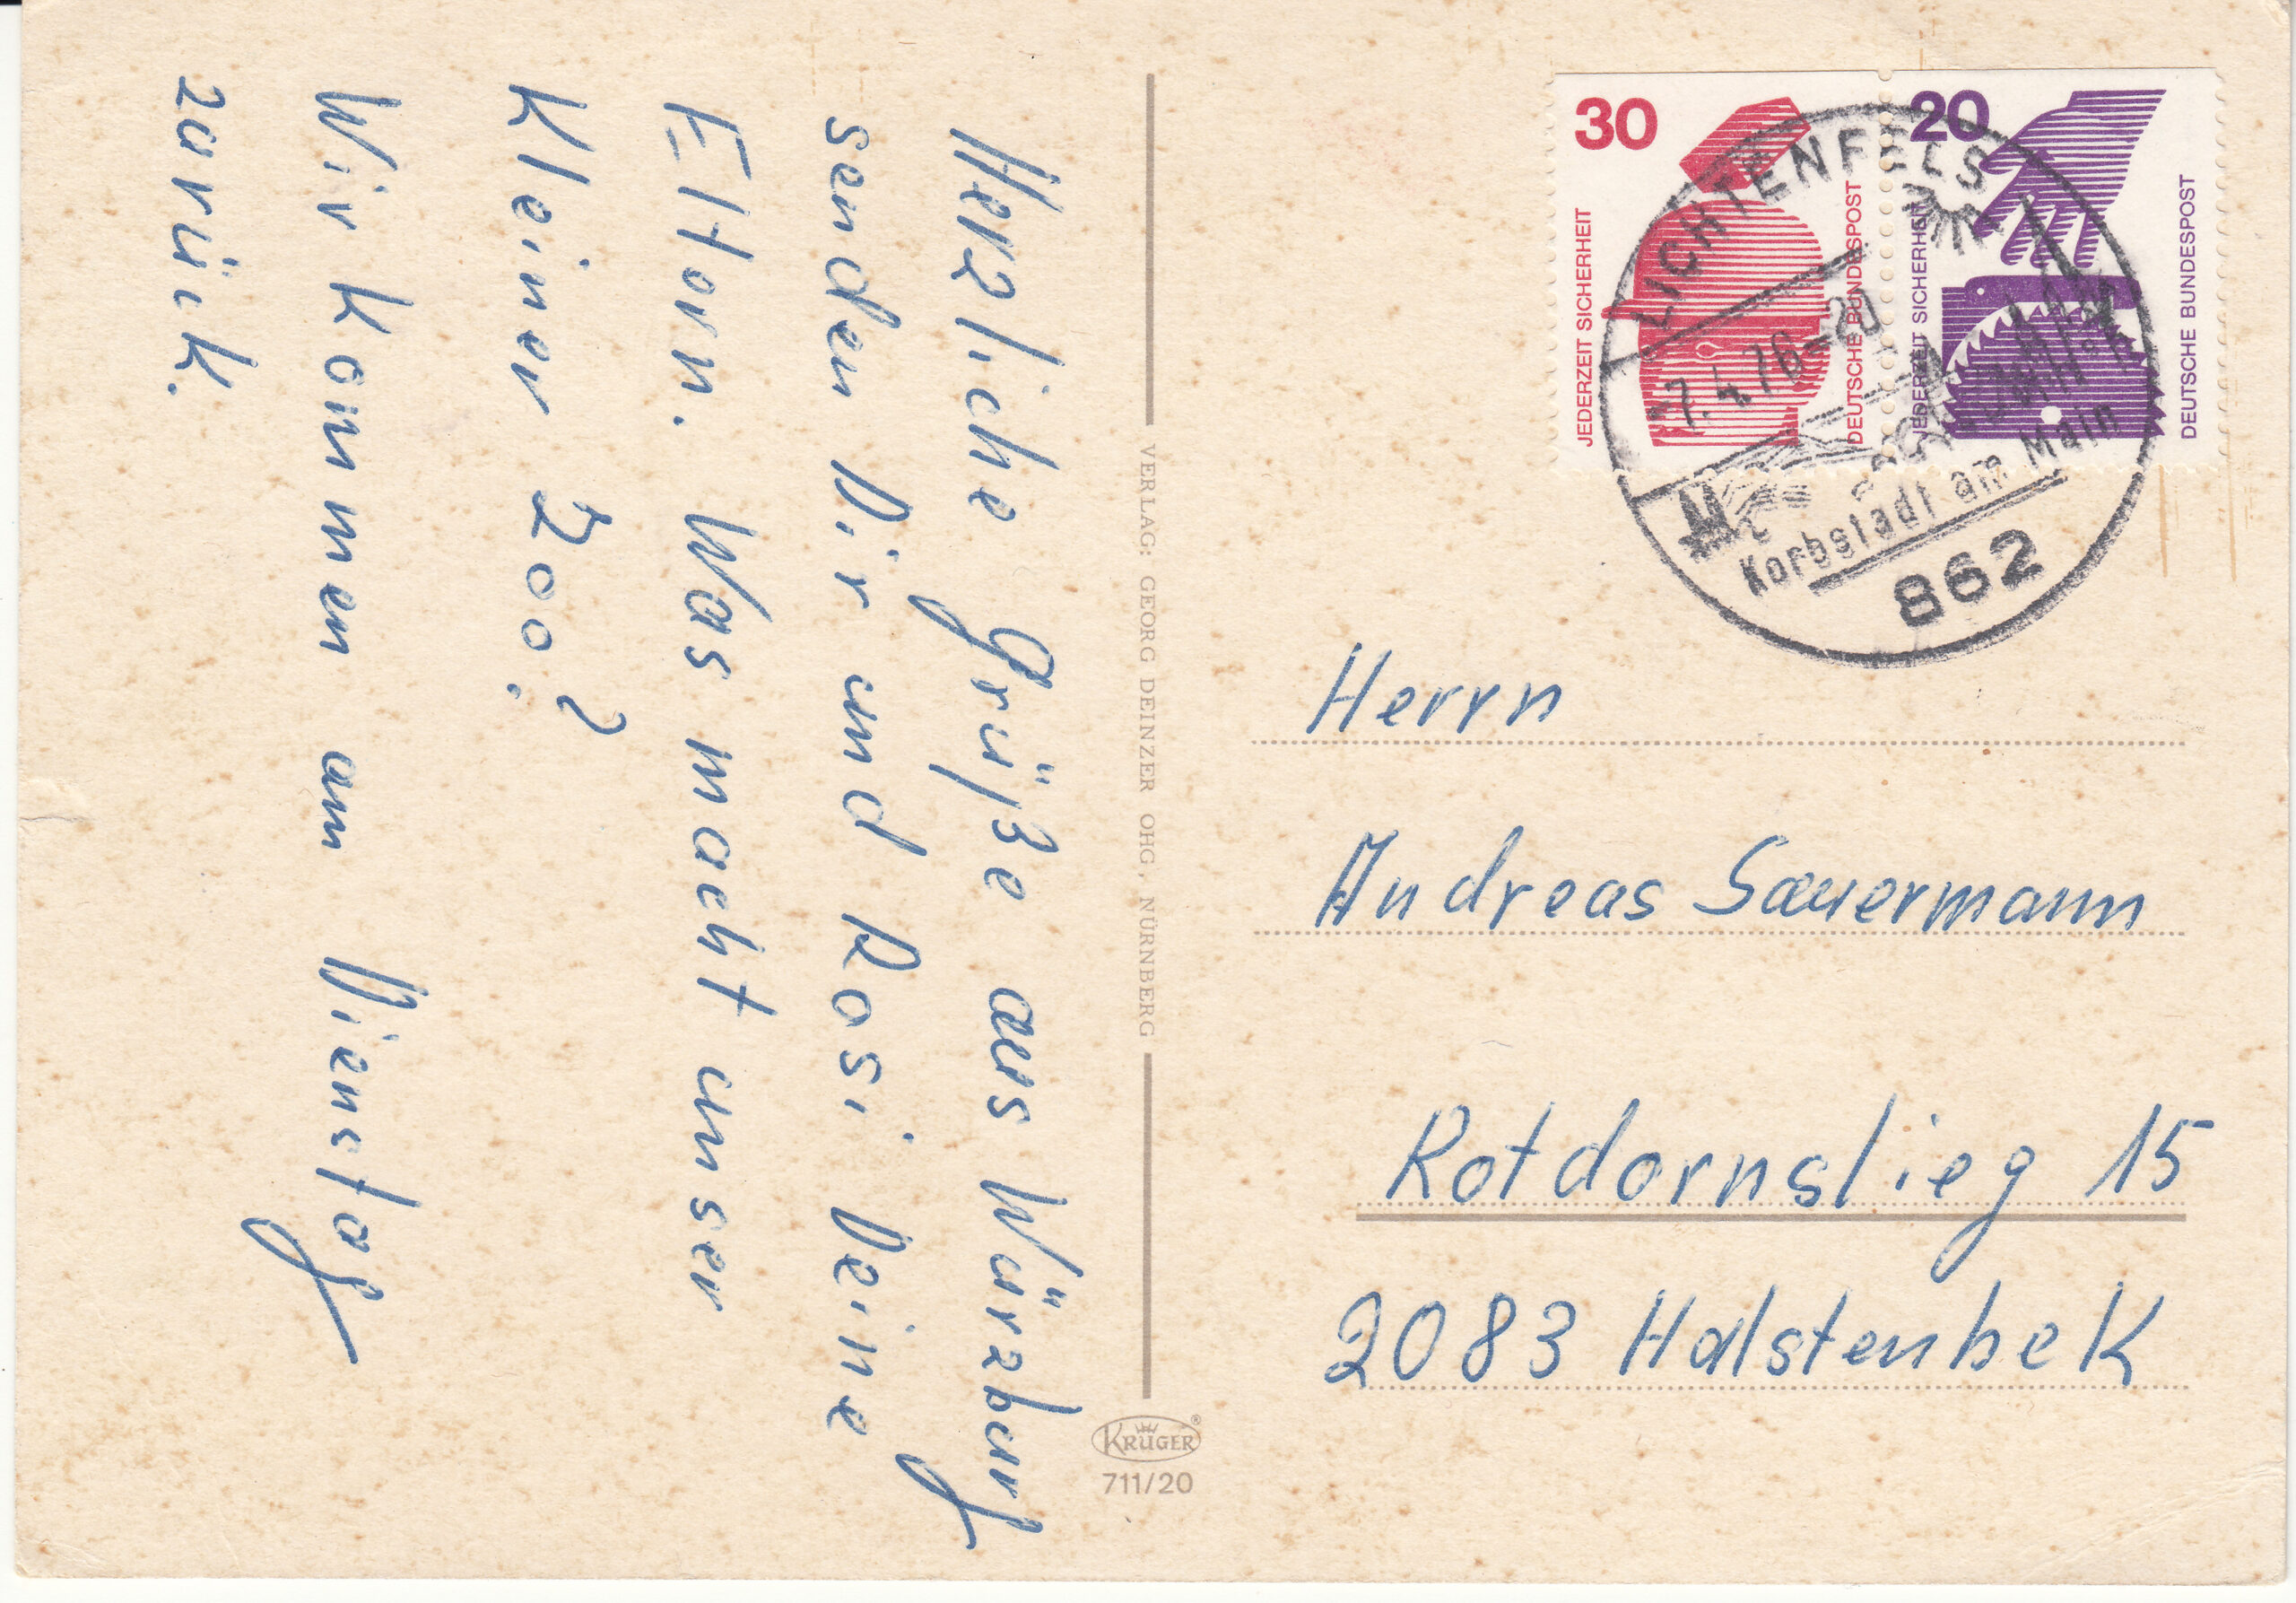 Herzliche Grüße aus Würzburg
senden Dir und Rosi Deine
Eltern. Was macht unser
Kleiner Zoo?
Wir kommen am Dienstag
zurück.
VERLAG: GEORG DEINZER OHG, NÜRNBERG
KRÜGER®
711/20
30
JEDERZEIT SICHERHEIT
DEUTSCHE BUNDESPOST
20
JEDERZEIT SICHERHEIT
DEUTSCHE BUNDESPOST
LICHTENFELS
-7.4.76-20
Korbstadt am Main
862
Herrn
Andreas Sauermann
Rotdornstieg 15
2083 Halstenbek